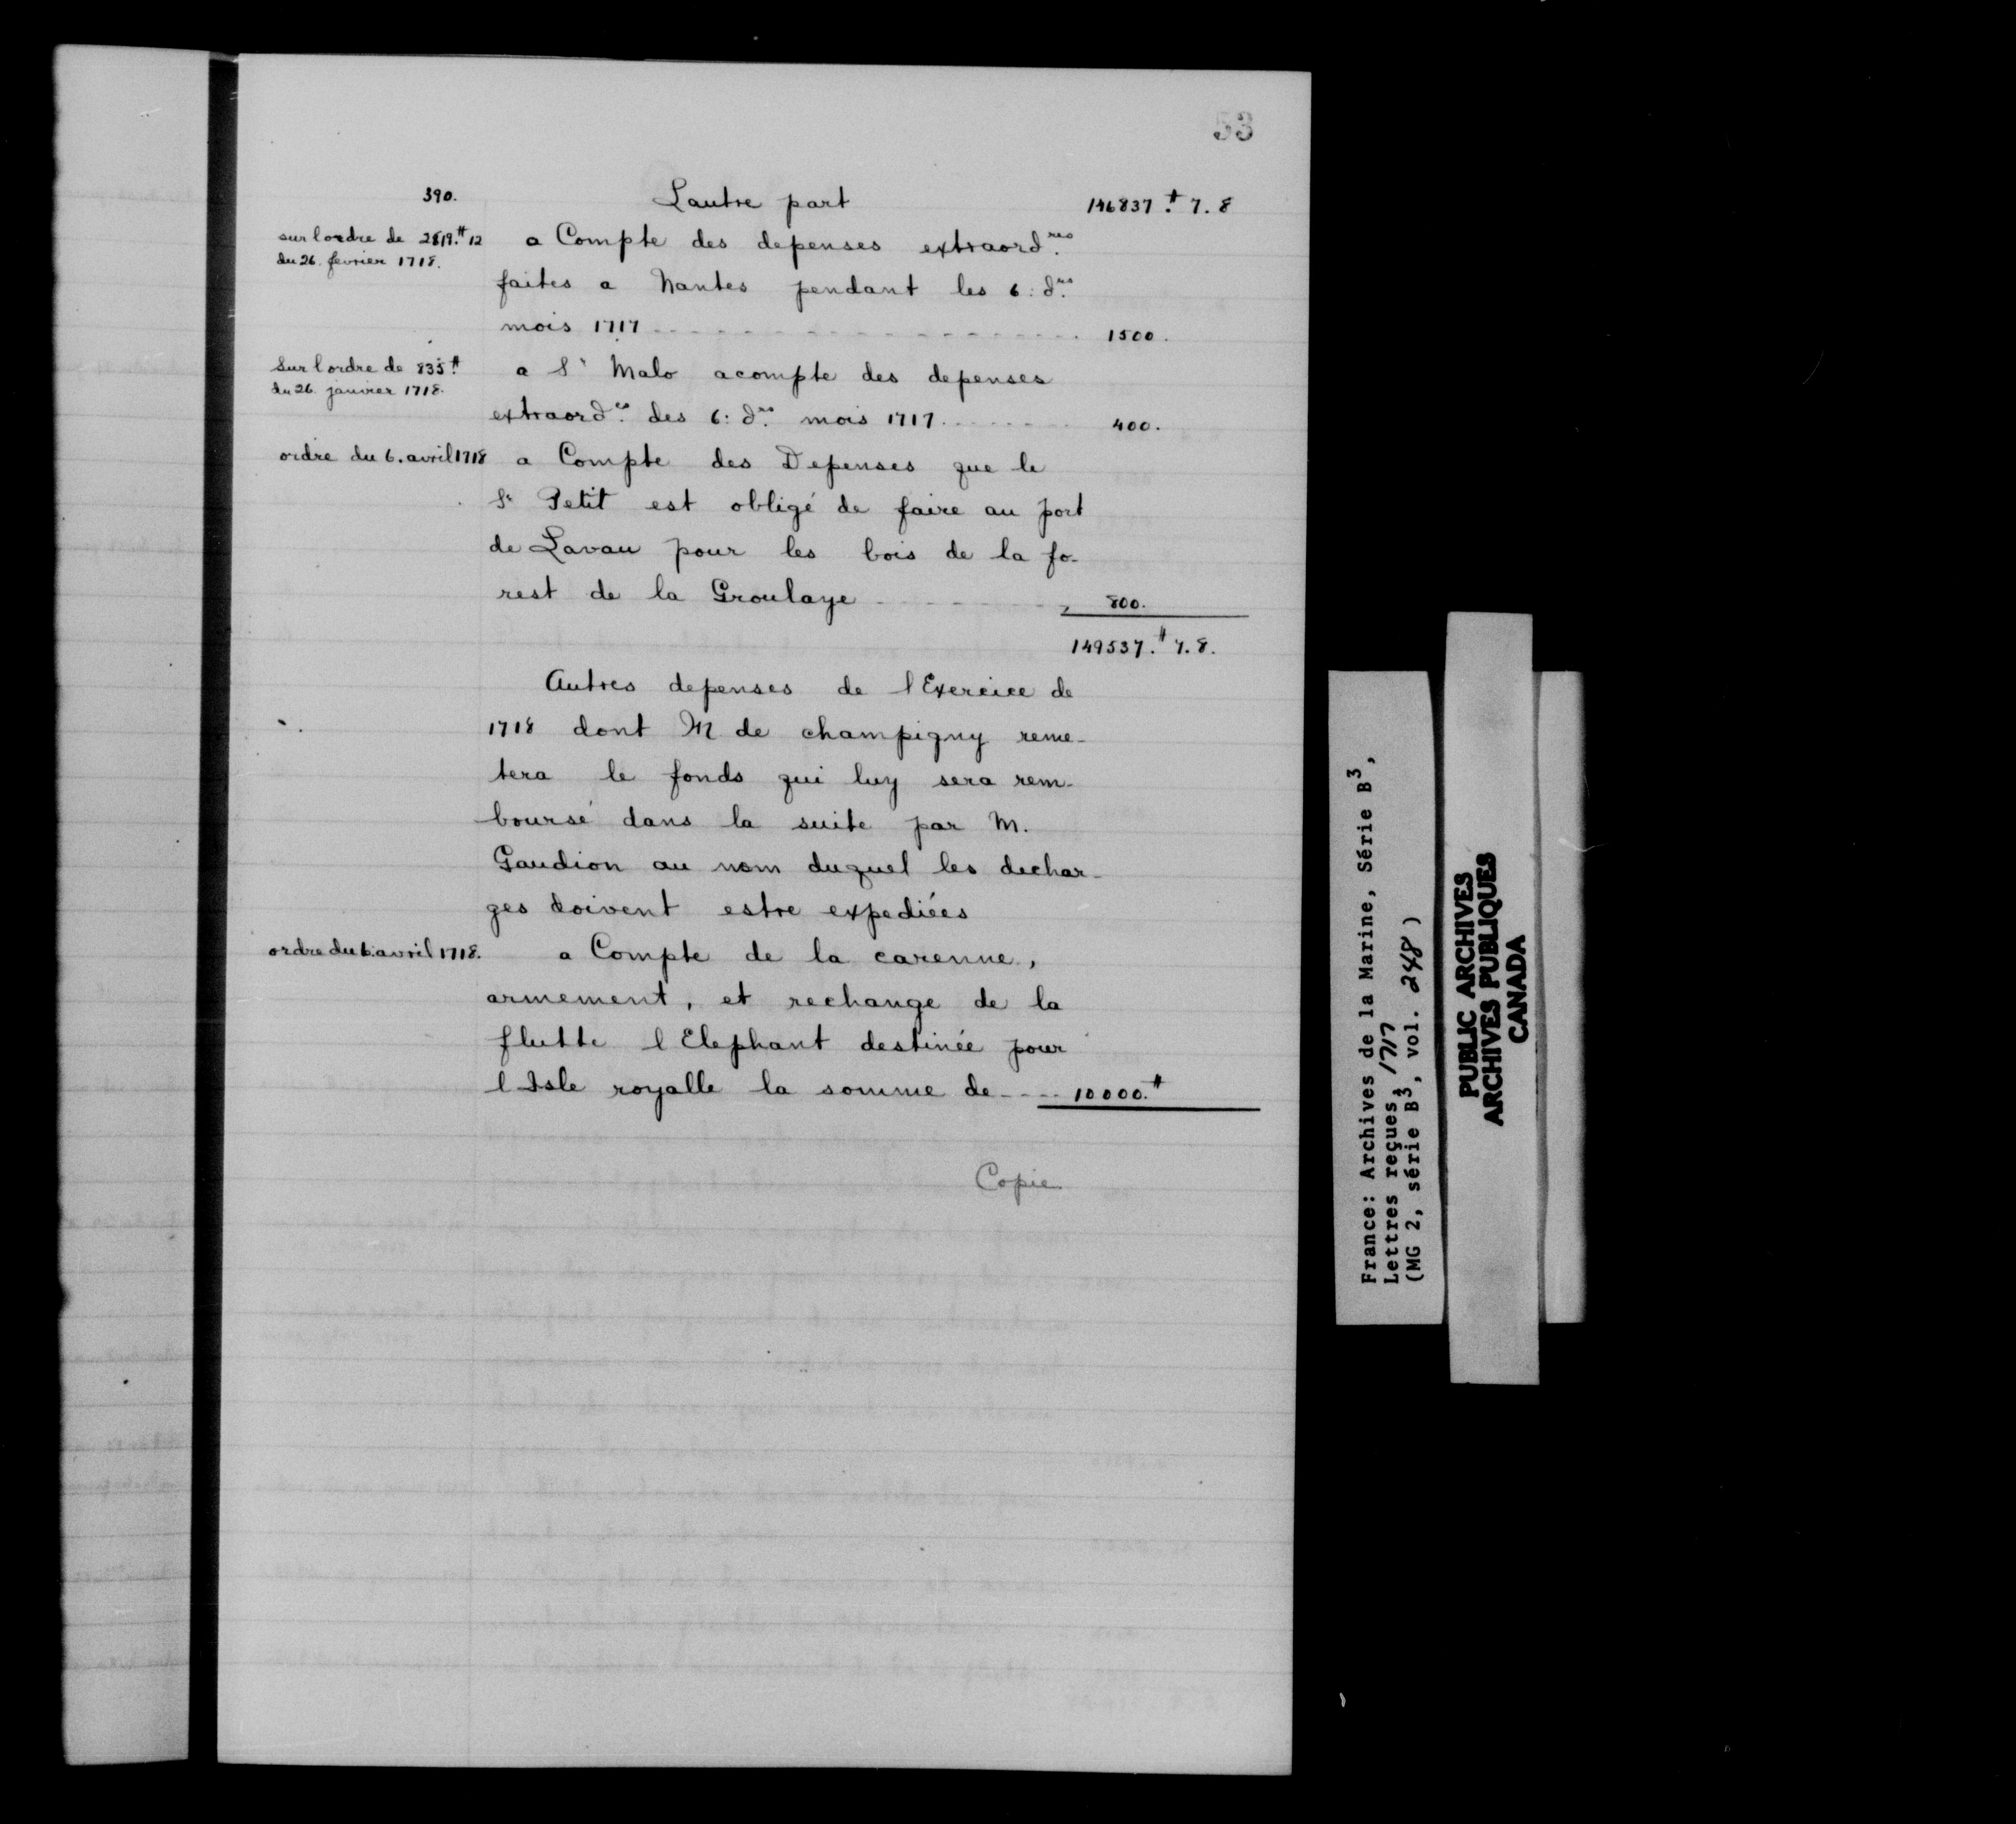 53
390. Lautre part 146837.# 7.8
sur lordre de 2819.# 12
du 26. fevrier 1718.
a Compte des depenses extraord.res
faites a Nantes pendant les 6: d.res
mois 1717 1500.
Sur lordre de 835.#
du 26 janvier 1718.
a St Malo acompte des depenses
extraord.es des 6: d.res mois 1717 400.
ordre du 6. avril 1718 a Compte des Depenses que le
Sr Petit est obligé de faire au port
de Lavau pour les bois de la fo-
rest de la Groulaye 800.
149537.# 7.8.
Autres depenses de l Exercice de
1718 dont M de champigny reme-
tera le fonds qui luy sera rem-
boursé dans la suite par M.
Gaudion au nom duquel les dechar-
ges doivent estre expediées
ordre du 6. avril 1718. a Compte de la carenne,
armement, et rechange de la
flutte l Elephant destinée pour
l Isle royalle la somme de 10000.#
Copie
France: Archives de la Marine, Série B3,
Lettres reçues, 1717
(MG 2, série B3, vol. 248)
PUBLIC ARCHIVES
ARCHIVES PUBLIQUES
CANADA